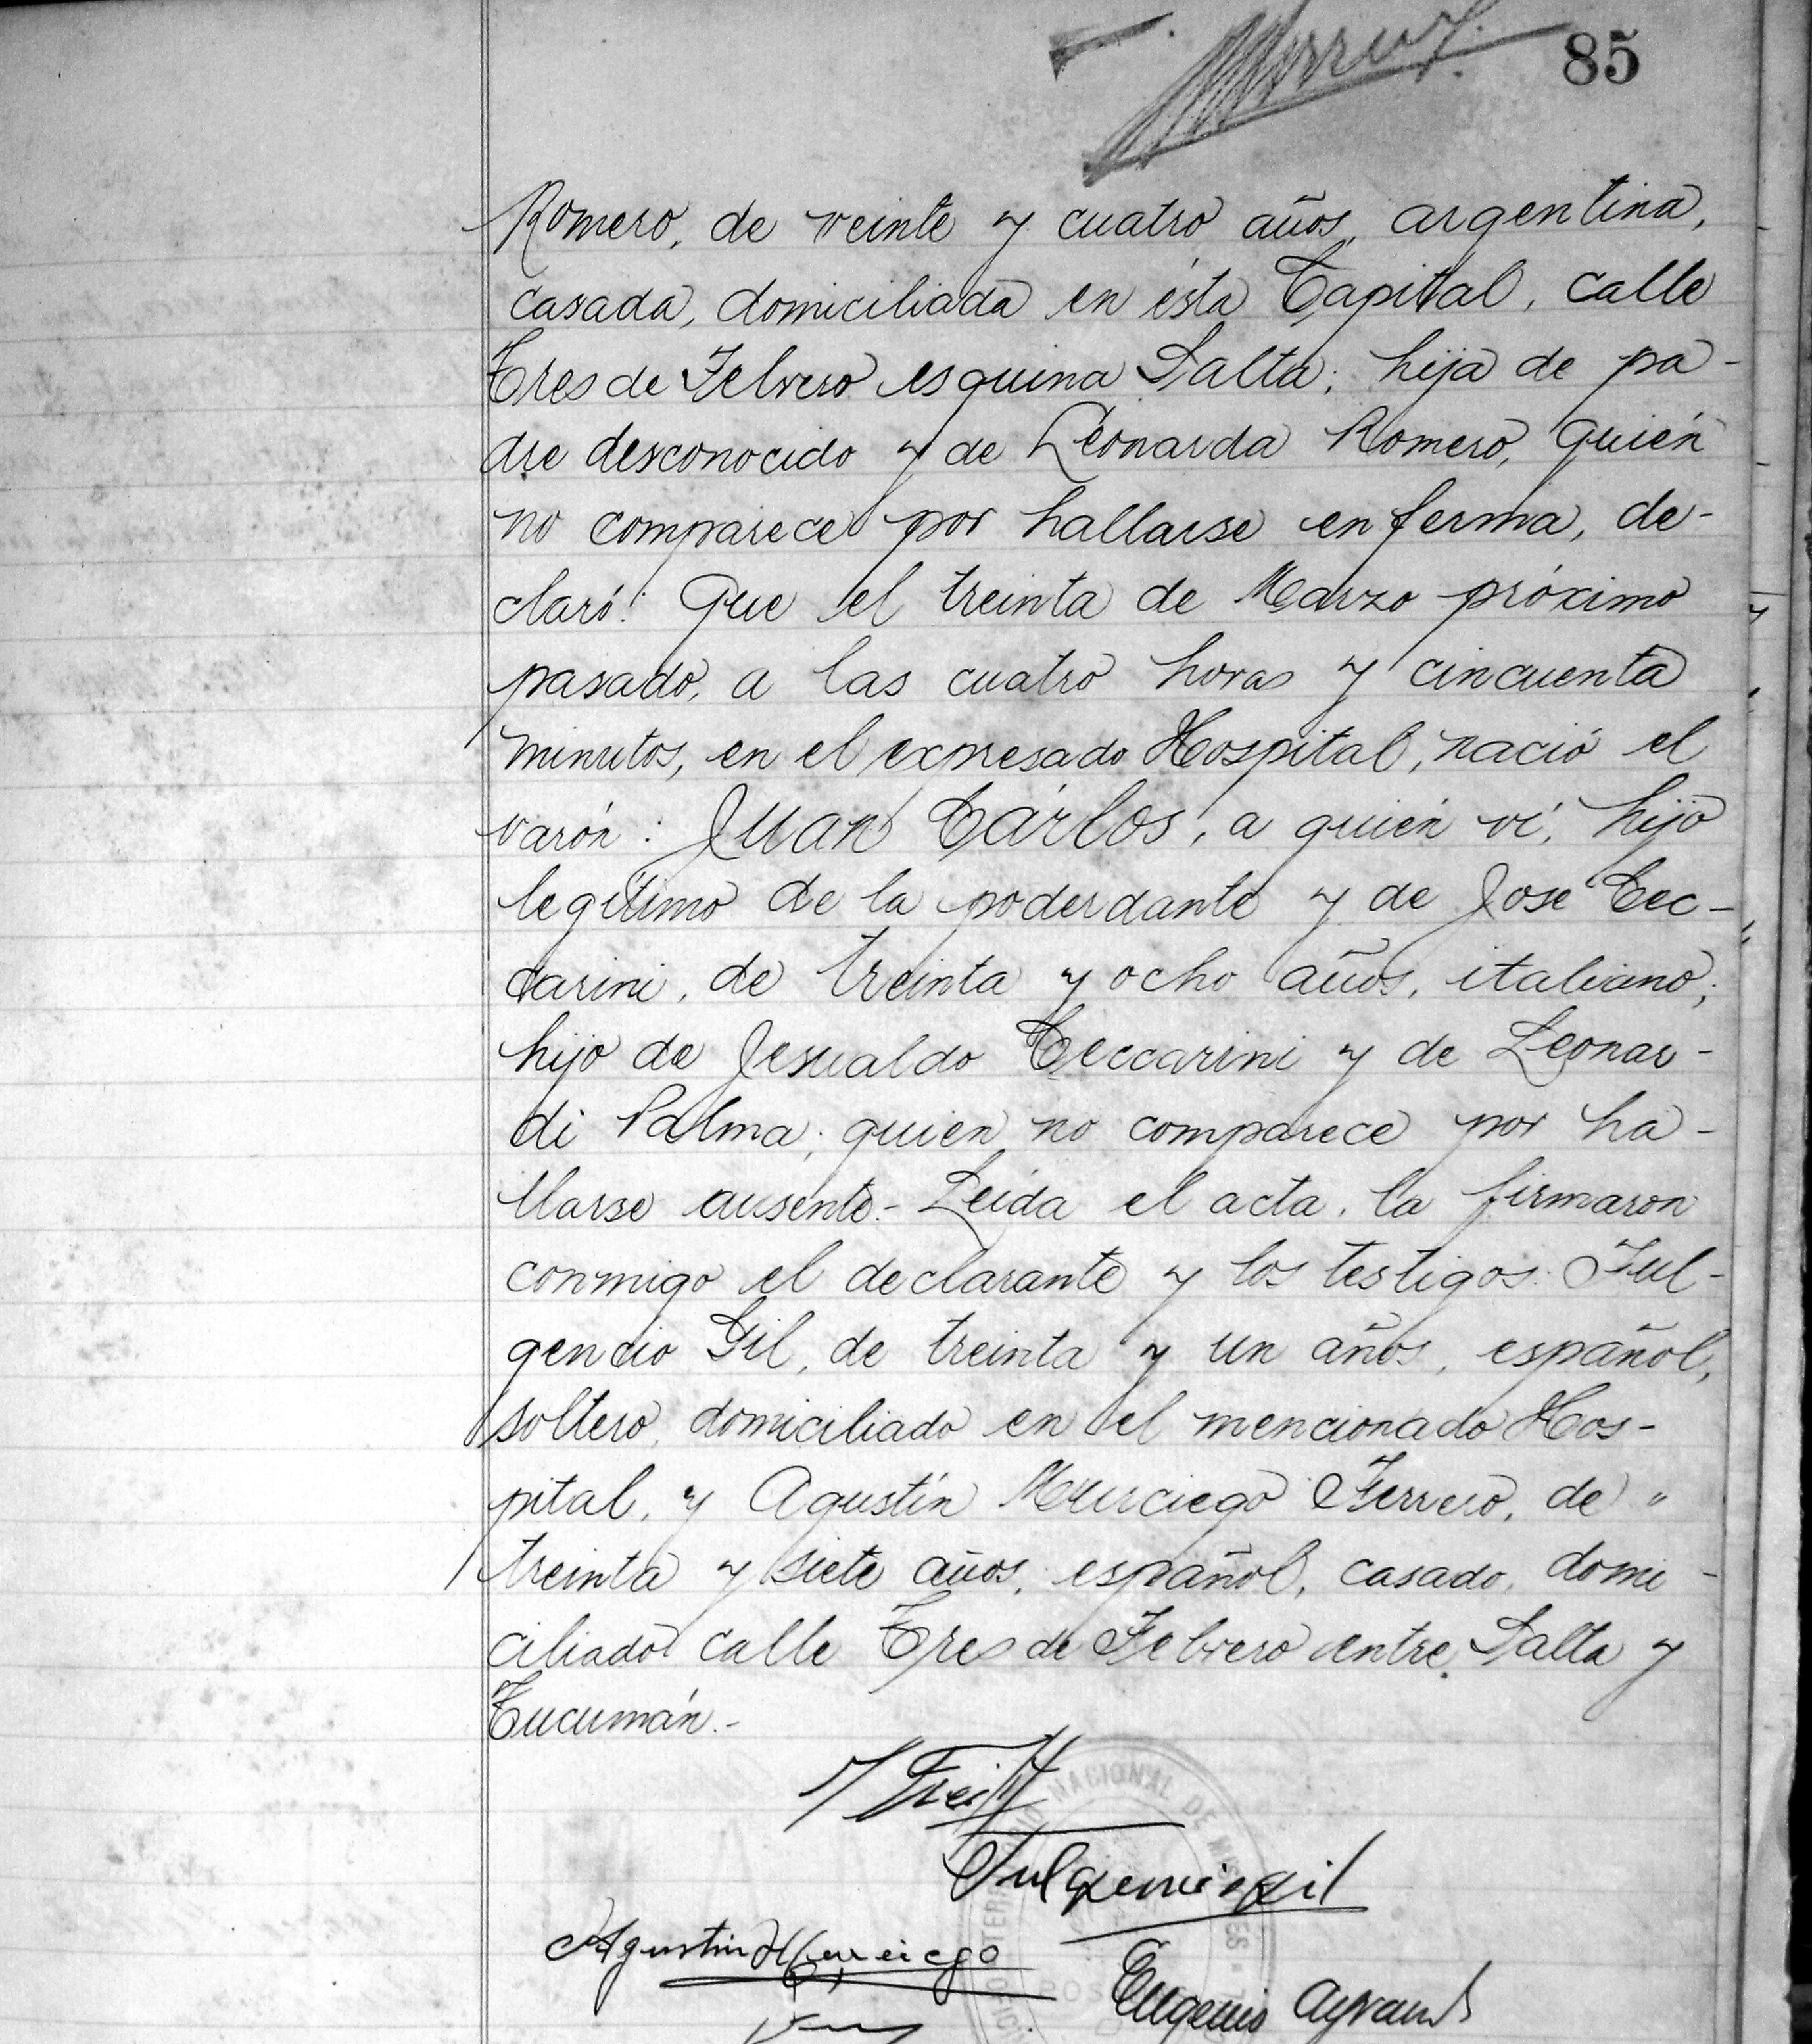 85
Romero, de veinte y cuatro años, argentina,
casada, domiciliada en ésta Capital, calle
Tres de Febrero esquina Salta; hija de pa-
dre desconocido y de Leonarda Romero, quién
no comparece por hallarse enferma, de-
claró: Que el treinta de Marzo próximo
pasado, a las cuatro horas y cincuenta
minutos, en el expresado Hospital, nació el
varón: Juan Cárlos, a quién ví, hijo
legítimo de la poderdante y de José Cec-
carini, de treinta y ocho años, italiano;
hijo de Jesualdo Ceccarini y de Leonar-
di Palma; quien no comparece por ha-
llarse ausente.- Leída el acta, la firmaron
conmigo el declarante y los testigos: Ful-
gencio Gil, de treinta y un años, español,
soltero, domiciliado en el mencionado Hos-
pital, y Agustín Murciego Ferrero, de "
treinta y siete años, español, casado, domi-
ciliado calle Tres de Febrero entre Salta y
Tucumán.-
NACIONAL DE MISIONES
Fulgencio Gil
Agustin Murciego
Eugenio